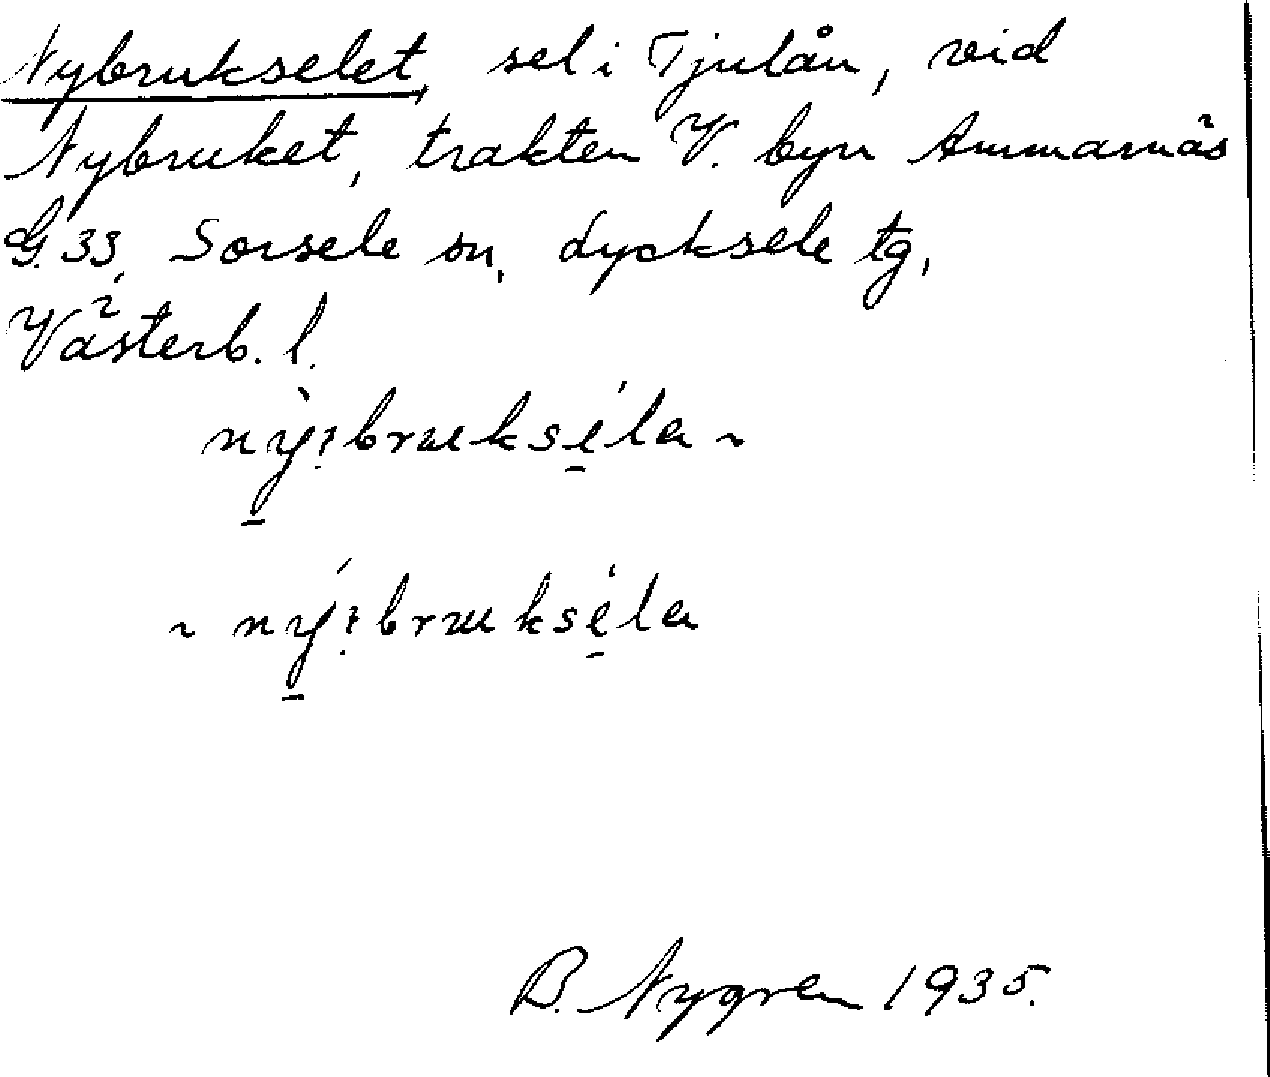 Nybrukselet, sel i Tjulån, vid
Nybruket, trakten V. byn Ammarnäs
G. 33, Sorsele sn, Lycksele tg,
Västerb. l.
nỳ̱:bruksé̱la ~
~ ný̱:bruksé̱la
B. Nygren 1935.